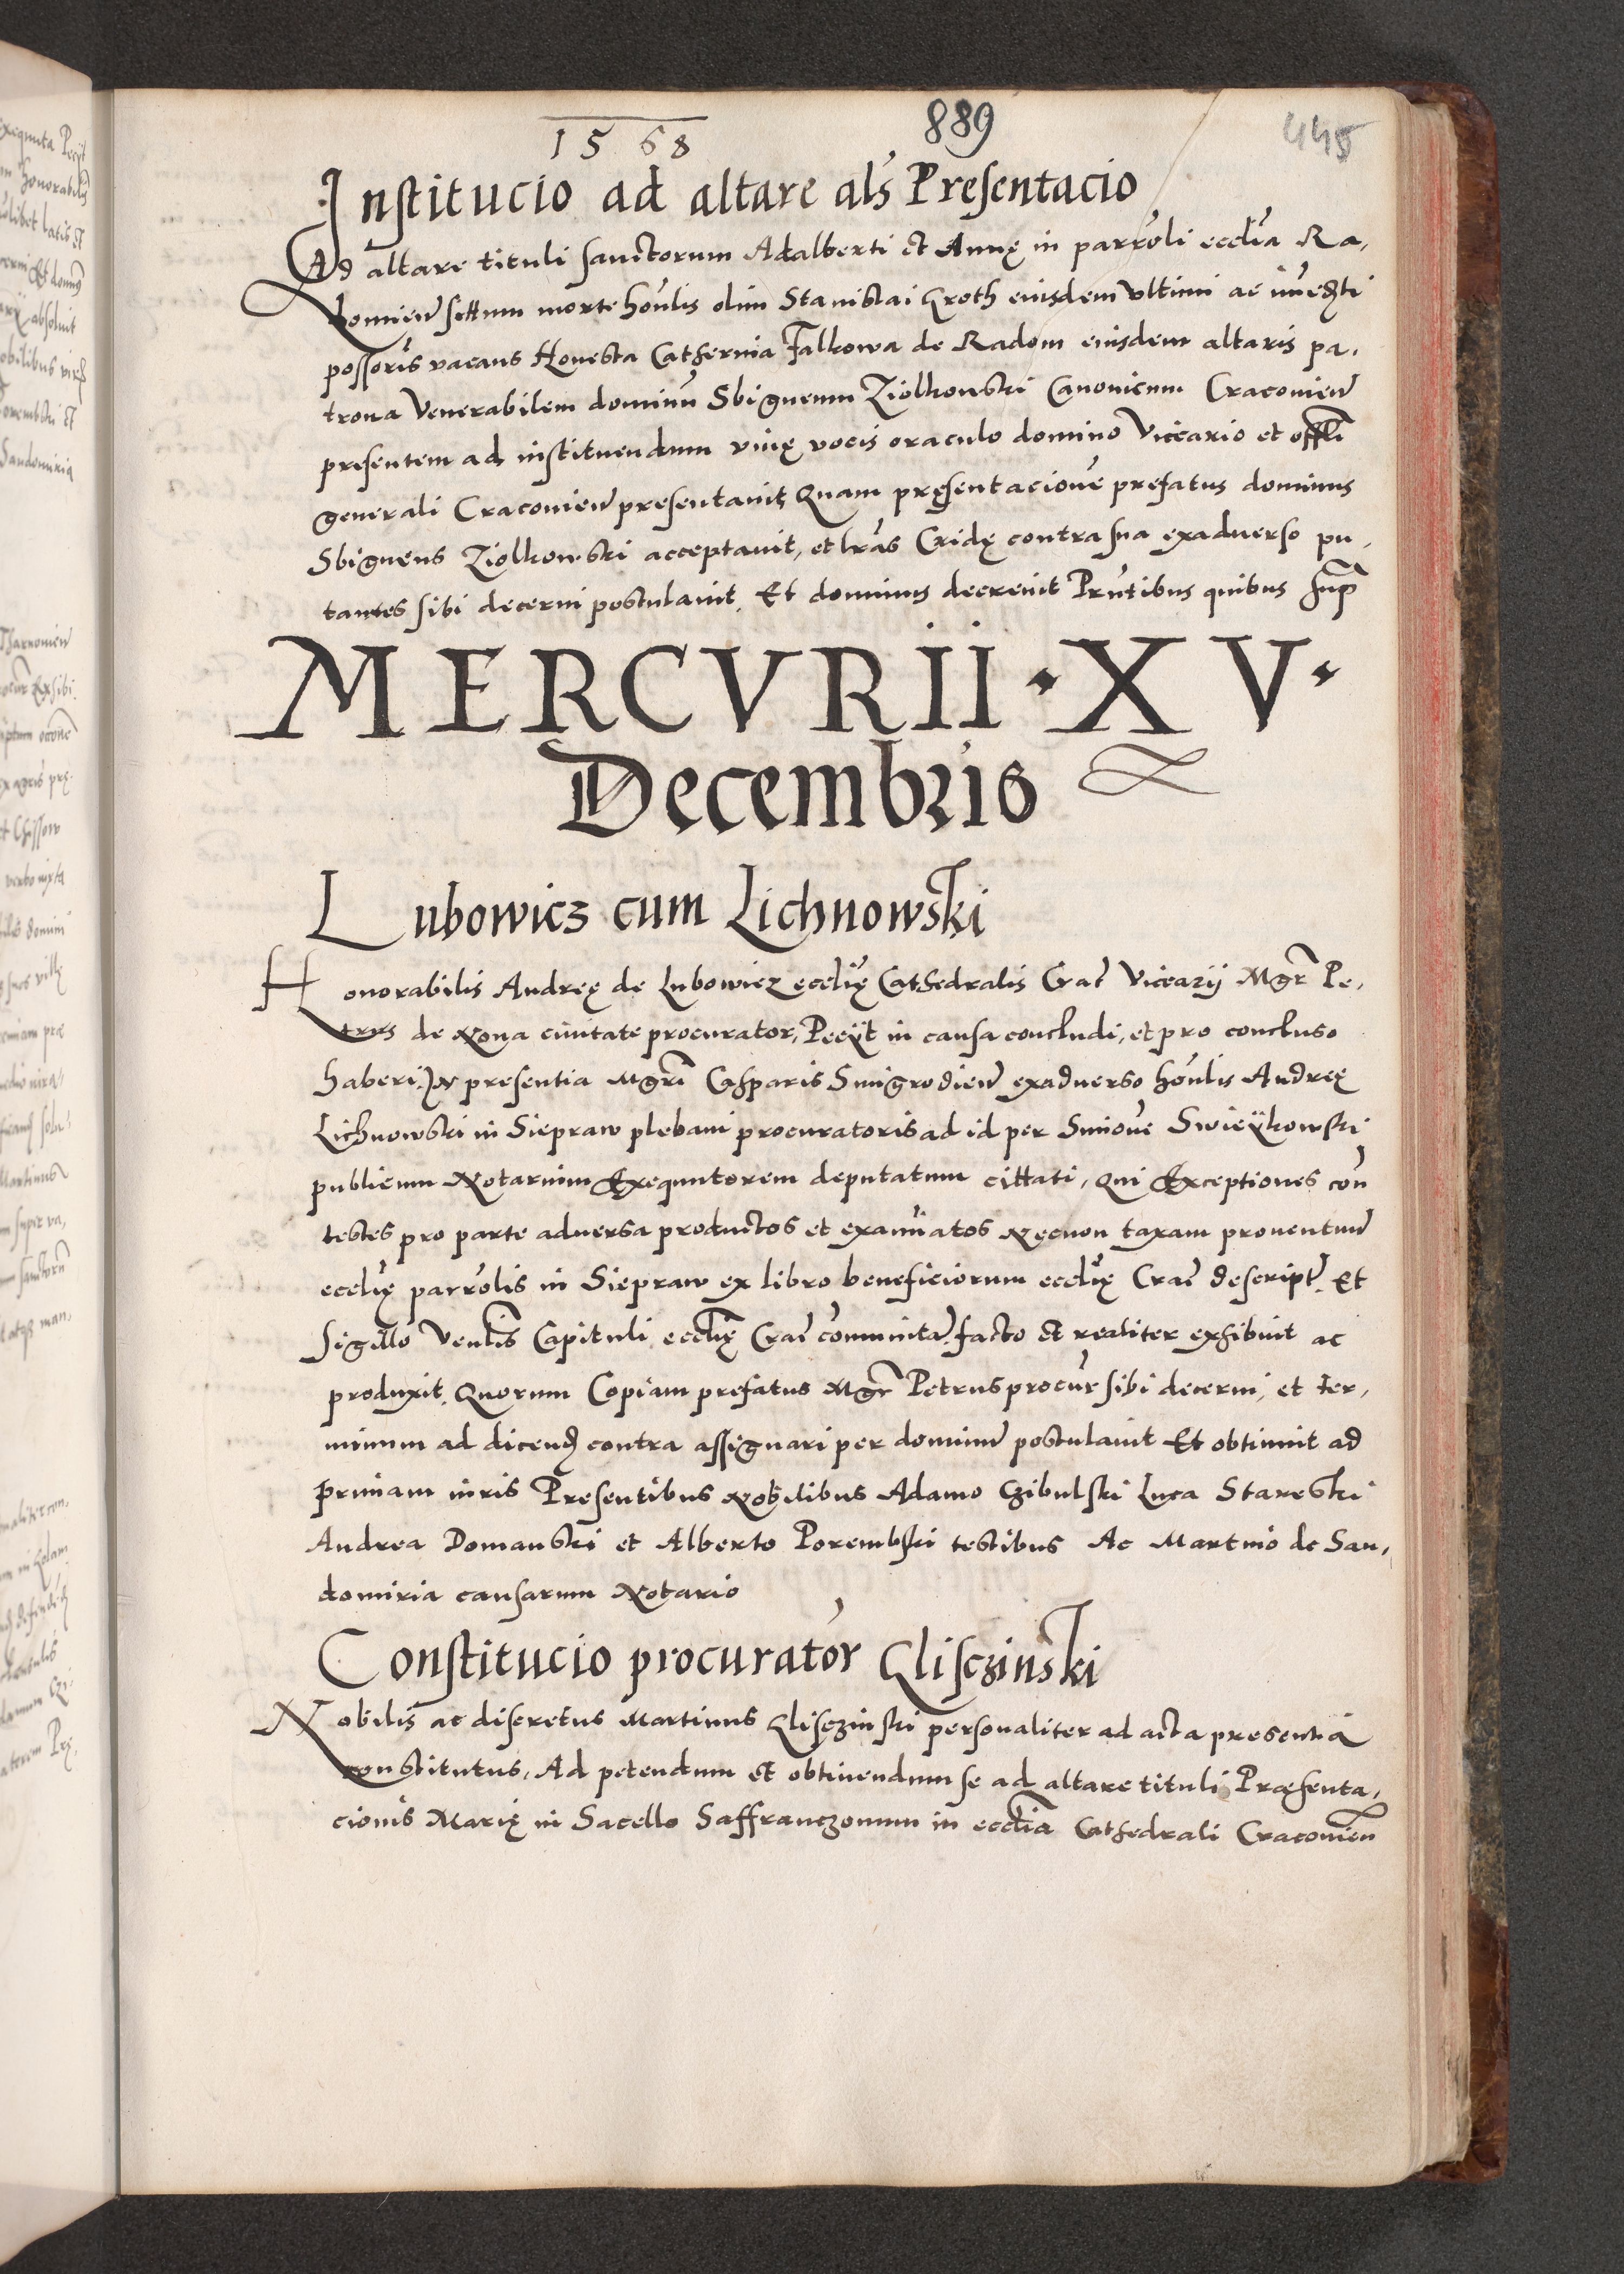 1568 889 445
Institucio ad altare als Presentacio
Ad altare tituli sanctorum Adalberti et Annę in parroli ecclia Ra,
domien sittum morte honlis olim Stanislai Groth eiusdem ultimi ac immediti
possoris vacans Honesta Catherina Falkowa de Radom eiusdem altaris pa,
trona Venerabilem dominu Sbigneum Ziolkowski Canonicum Cracovien
presentem ad instituendum vivę vocis oraculo domino Vicario et offli
generali Cracovien presentavit Quam pręsentacione prefatus dominus
Sbigneus Ziolkowski acceptavit, et lras Cridę contra sua exadverso pu,
tantes sibi decerni postulavit. Et dominus decrevit Prntibus quibus supra
MERCVRII · XV ·
Decembris
Lubowicz cum Lichnowski
Honorabilis Andreę de Lubowicz ecclię Cathedralis Crac Vicarij Mgr Pe,
trus de Nova civitate procurator, Pecijt in causa concludi, et pro concluso
haberi, In presentia Mgri Casparis Smigrodien exadverso honlis Andreę
Lichnowski in Siepraw plebani procuratoris ad id per Simone Swieijkowski
publicum Notarium Exequutorem deputatum cittati, qui Exceptiones con
testes pro parte adversa productos et examinatos Necnon taxam proventuum
ecclię parrolis in Siepraw ex libro beneficiorum ecclię Crac descript. Et
sigillo Venlis Capituli ecclię Crac communita facto et realiter exhibuit ac
produxit. Quorum Copiam prefatus Mgr Petrus procur sibi decerni, et ter,
minum ad dicend contra assignari per dominum postulavit Et obtinuit ad
primam iuris Presentibus Nobilibus Adamo Czibulski Luca Stareski
Andrea Domanski et Alberto Porembski testibus Ac Martino de San,
domiria causarum Notario
Constitucio procurator Gliszczinski
Nobilis ac discretus Martinus Gliszczinski personaliter ad acta presentia
constitutus, Ad petendum et obtinendum se ad altare tituli Præsenta,
cionis Marię in Sacello Saffranczonum in ecclia Cathedrali Cracovien